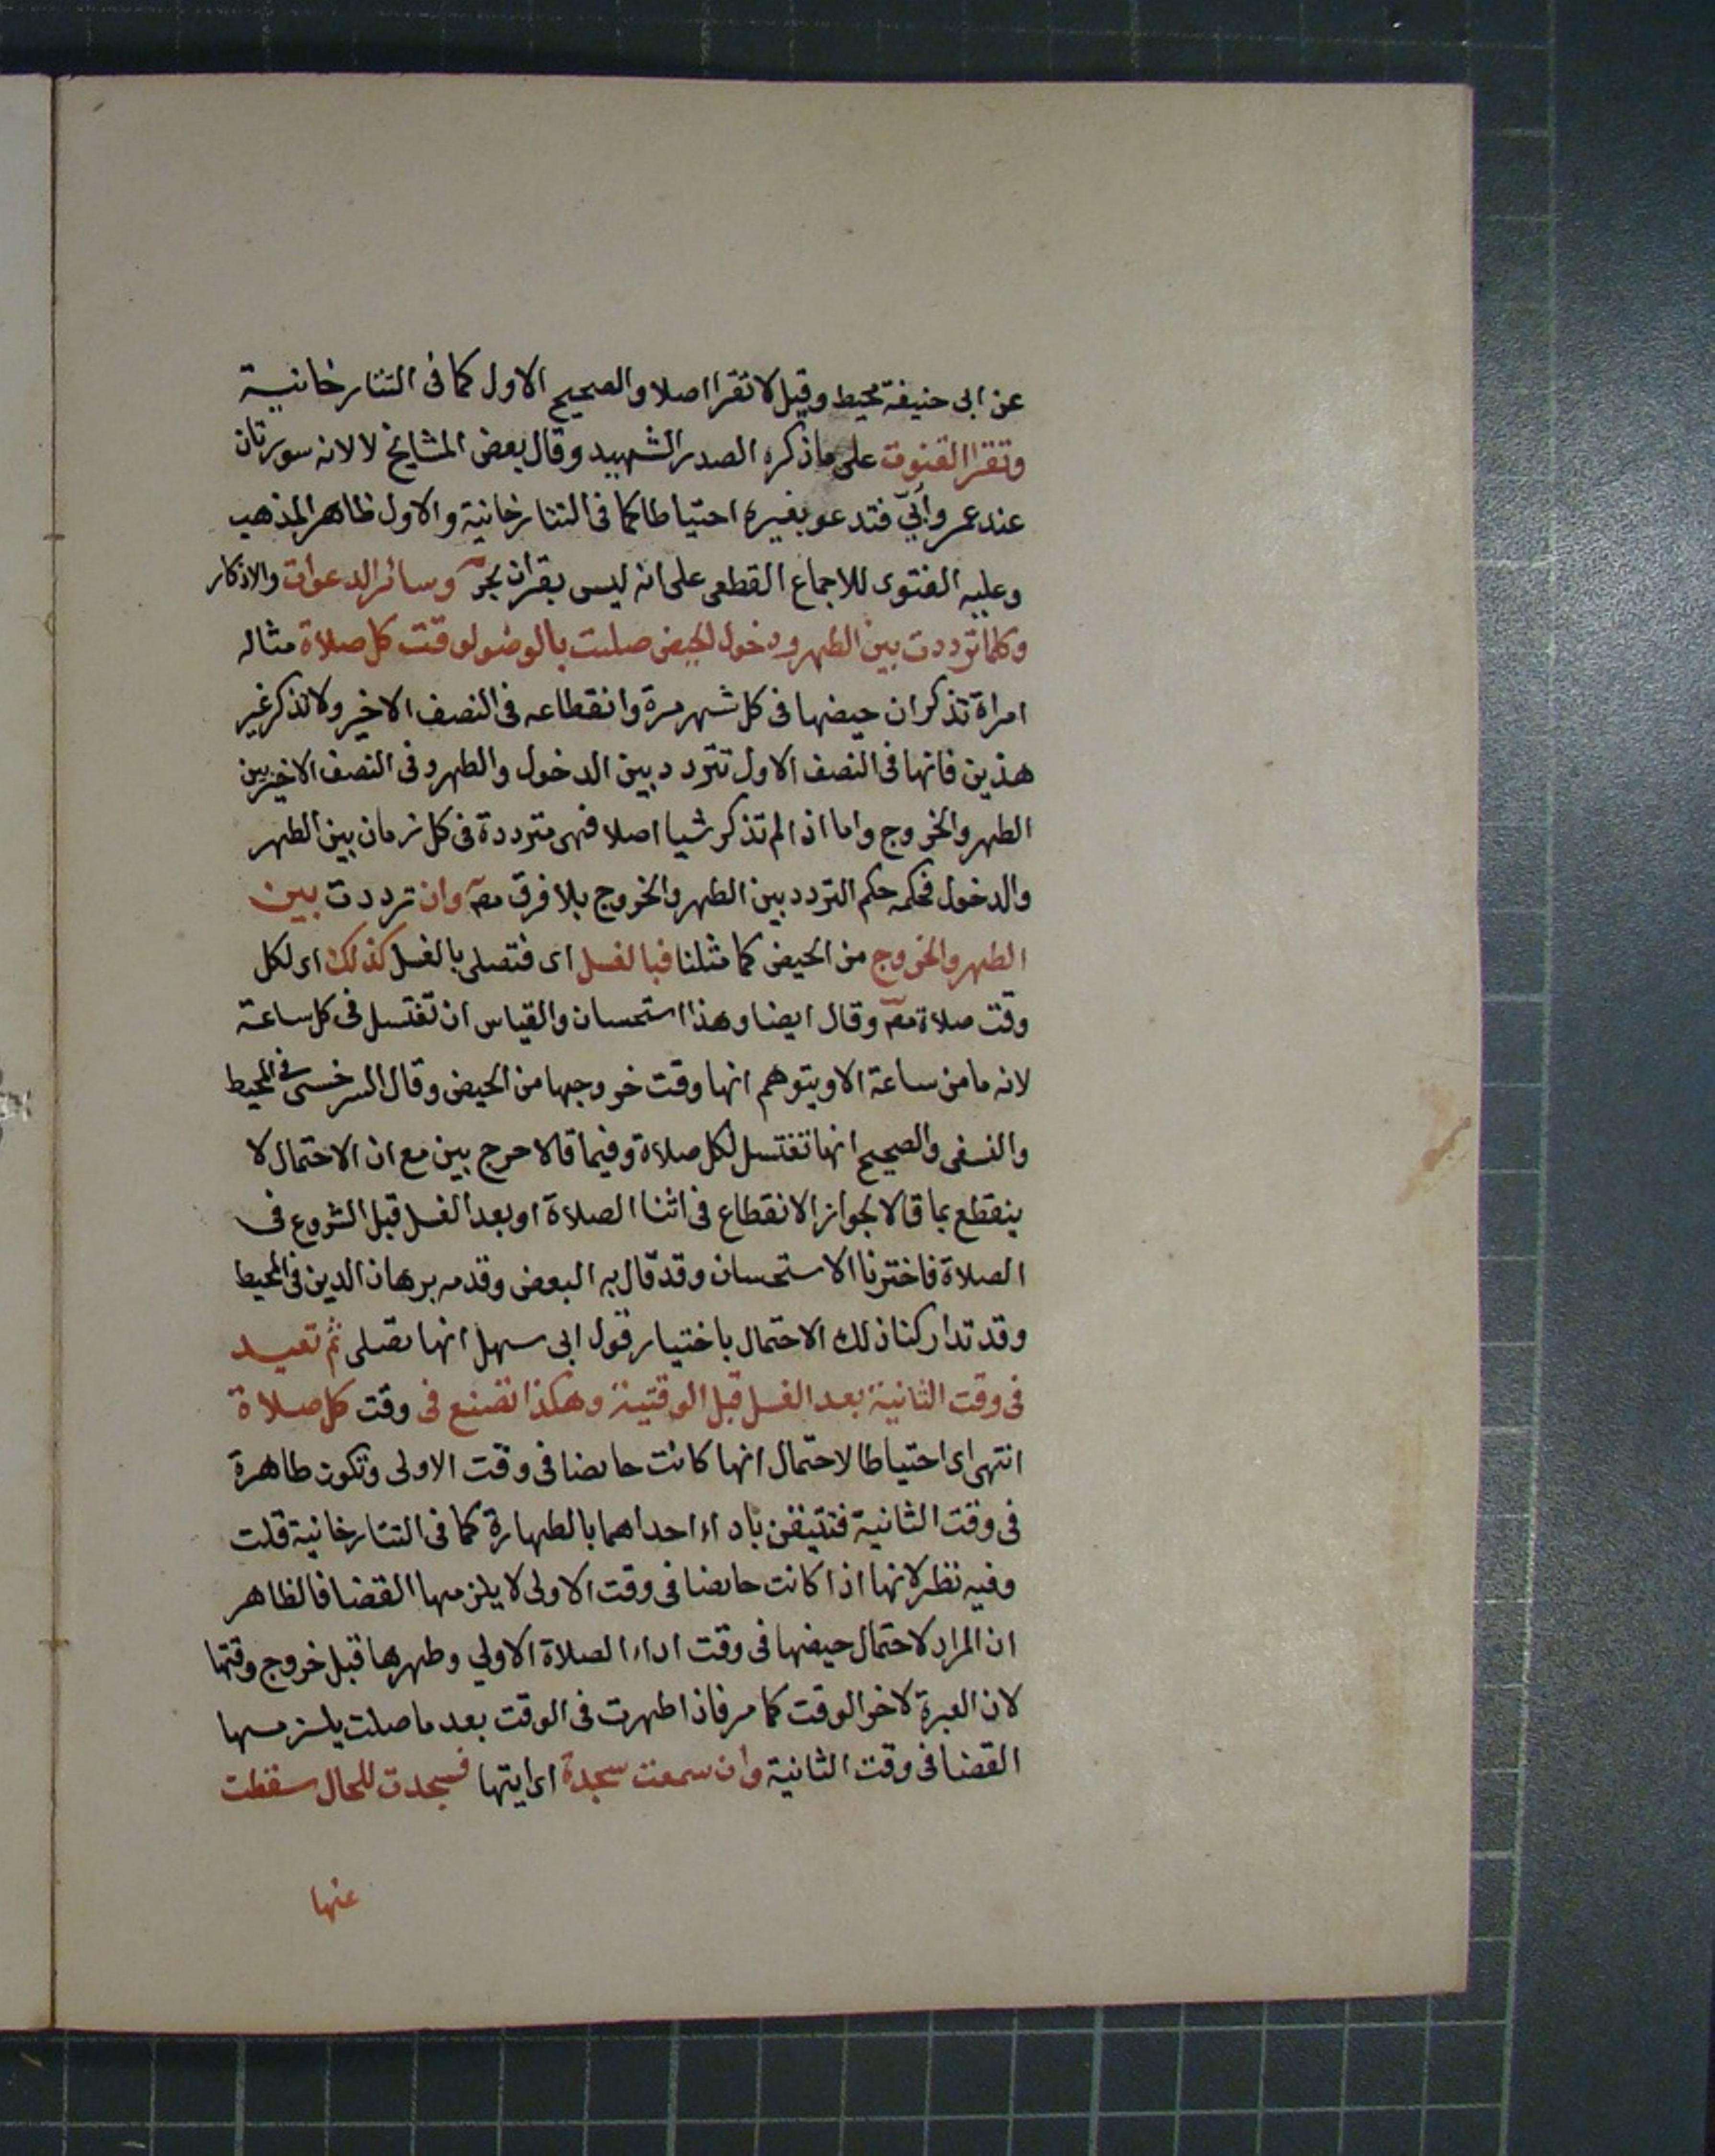 عن ابى حنيفة محيط وقيل لا تقرا اصلا والصحيح الاول كما فى التتارخانية
وتقرا القنوت على ما ذكره الصدر الشهيد وقال بعض المشايخ لا لانه سورتان
عند عمر وأبيّ فتدعو بغيره احتياطا كما فى التتارخانية والاول ظاهر المذهب
وعليه الفتوى للاجماع القطعى على انه ليس بقران بحر وسائر الدعوات والاذكار
وكلما ترددت بين الطهر ودخول الحيض صلت بالوضو لوقت كل صلاة مثاله
امراة تذكر ان حيضها فى كل شهر مرة وانقطاعه فى النصف الاخير ولا تذكر غير
هذين فانها فى النصف الاول تتردد بين الدخول والطهر وفى النصف الاخير بين
الطهر والخروج واما اذا لم تذكر شيا اصلا فهى مترددة فى كل زمان بين الطهر
والدخول فحكمه حكم التردد بين الطهر والخروج بلا فرق مصـ وان ترددت بين
الطهر والخروج من الحيض كما مثلنا فبالغسل اى فتصلى بالغسل كذلك اى لكل
وقت صلاة مصـ وقال ايضا وهذا استحسان والقياس ان تغتسل فى كل ساعة
لانه ما من ساعة الا ويتوهم انها وقت خروجها من الحيض وقال السرخسى فى المحيط
والنسفى والصحيح انها تغتسل لكل صلاة وفيما قالا حرج بين مع ان الاحتمال لا
ينقطع بما قالا لجواز الانقطاع فى اثنا الصلاة او بعد الغسل قبل الشروع فى
الصلاة فاخترنا الاستحسان وقد قال به البعض وقدمه برهان الدين فى المحيط
وقد تداركنا ذلك الاحتمال باختيار قول ابى سهل انها تصلى ثم تعيد
فى وقت الثانية بعد الغسل قبل الوقتية وهكذا تصنع فى وقت كل صلاة
انتهى اى احتياطا لاحتمال انها كانت حائضا فى وقت الاولى وتكون طاهرة
فى وقت الثانية فتتيقن باداء احداهما بالطهارة كما فى التتارخانية قلت
وفيه نظر لانها اذا كانت حائضا فى وقت الاولى لا يلزمها القضا فالظاهر
ان المراد لاحتمال حيضها فى وقت اداء الصلاة الاولي وطهرها قبل خروج وقتها
لان العبرة لاخر الوقت كما مر فاذا طهرت فى الوقت بعد ما صلت يلزمها
القضا فى وقت الثانية وان سمعت سجدة اى ايتها فسجدت للحال سقطت
عنها